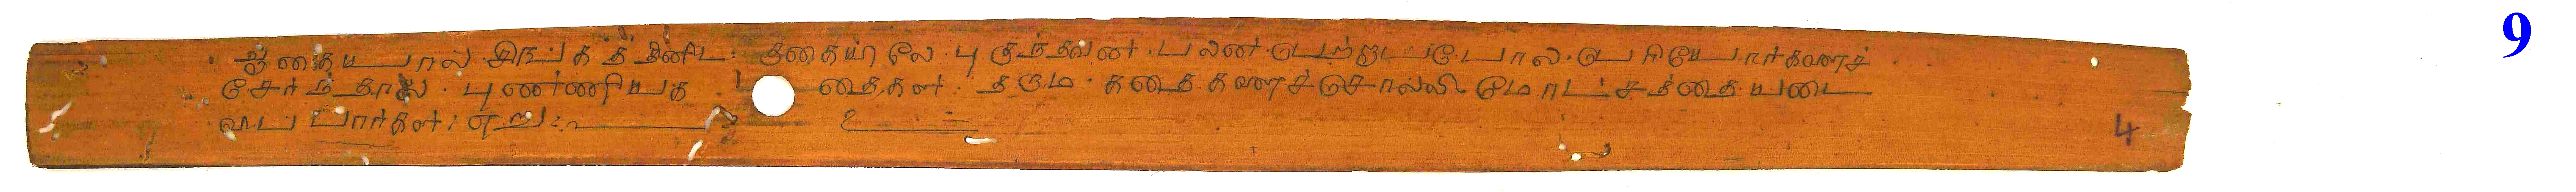 ஆகையால் இரக்கத்தினிட தகையிலே புகுந்தவன் பலன் பெற்றது போல பெரியோர்களைச்
சேர்ந்தால் புண்ணியக தைகள் தரும கதைகளைச் சொல்லி மோட்சத்தை யடை
வபபார்கள் எறு
4
9